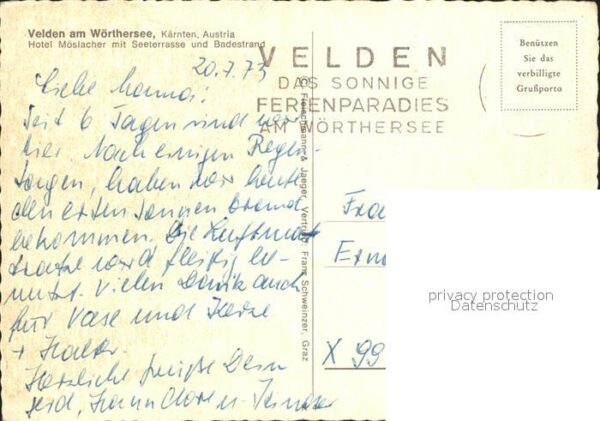 Velden am Wörthersee, Kärnten, Austria
Hotel Möslacher mit Seeterrasse und Badestrand
20.7.73
VELDEN
DAS SONNIGE
FERIENPARADIES
AM WÖRTHERSEE
Benützen
Sie das
verbilligte
Grußporto
Liebe
Seit 6 Tagen sind wir
hier. Nach einigen Regen-
tagen, haben wir heute
den ersten Sonnenbrand
bekommen. Die Luftmatratze
wird fleißig be-
nutzt. Vielen Dank auch
für Vase und Kerze
+ Halter.
Herzliche Grüße
© Fleischmann & Jaeger, Vertrieb: Franz Schweinzer, Graz
Fra
X 99
privacy protection
Datenschutz